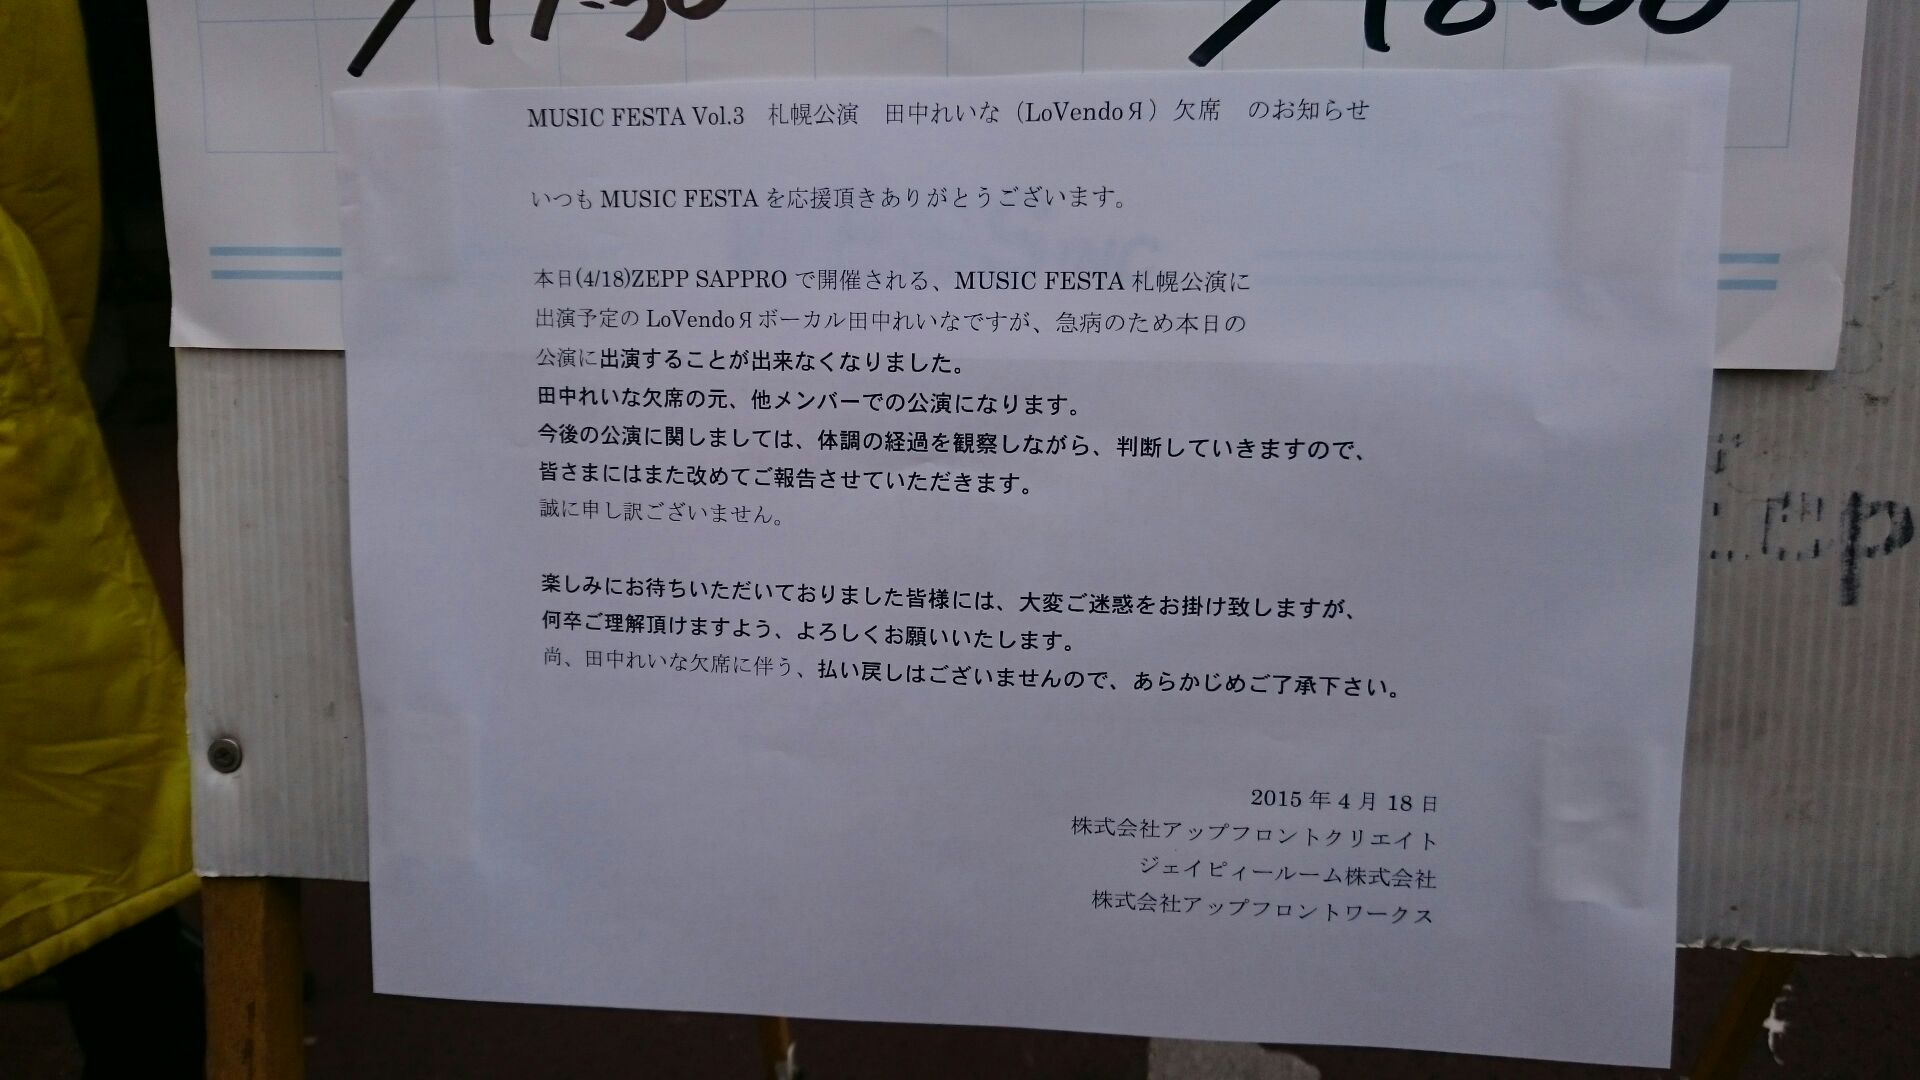 MUSIC FESTA Vol.3　札幌公演　田中れいな（LoVendoЯ）欠席　のお知らせ
いつも MUSIC FESTA を応援頂きありがとうございます。
本日(4/18)ZEPP SAPPRO で開催される、MUSIC FESTA 札幌公演に
出演予定の LoVendoЯボーカル田中れいなですが、急病のため本日の
公演に出演することが出来なくなりました。
田中れいな欠席の元、他メンバーでの公演になります。
今後の公演に関しましては、体調の経過を観察しながら、判断していきますので、
皆さまにはまた改めてご報告させていただきます。
誠に申し訳ございません。
楽しみにお待ちいただいておりました皆様には、大変ご迷惑をお掛け致しますが、
何卒ご理解頂けますよう、よろしくお願いいたします。
尚、田中れいな欠席に伴う、払い戻しはございませんので、あらかじめご了承下さい。
2015 年 4 月 18 日
株式会社アップフロントクリエイト
ジェイピィールーム株式会社
株式会社アップフロントワークス